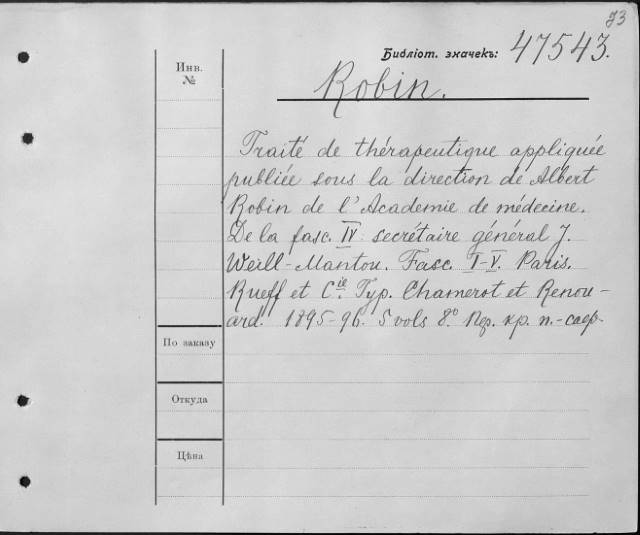 73
Библіот. значекъ: 47543.
Инв.
№
Robin.
Traité de thérapeutique appliquée
publiée sous la direction de Albert
Robin de l'Academie de médecine.
De la fasc. IV secrétaire général J.
Weill-Mantou. Fasc. I-V. Paris.
Rueff et Cie. Typ. Chamerot et Renou-
ard. 1895-96. 5 vols 8º Пер. кр. п.-саф.
По заказу
Откуда
Цѣна